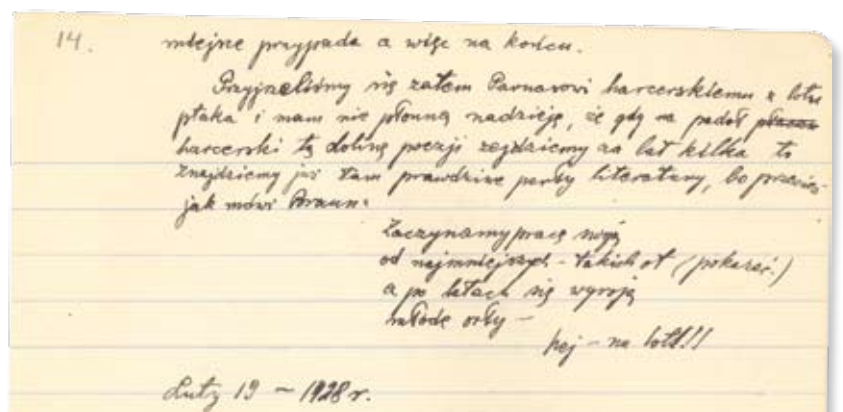 14.
miejsce przypada a więc na końcu.
Przyjrzeliśmy się zatem Parnasowi harcerskiemu z lotu
ptaka i mam nie płonną nadzieję, że gdy na padół płaczu
harcerski tę dolinę poezji zejdziemy za lat kilka to
znajdziemy już tam prawdziwe perły literatury, bo przecież
jak mówi Braun:
Zaczynamy pracę swoją
od najmniejszych – takich ot (pokazać.)
a po latach się wyroją
młode orły –
hej – na lot!!!
Luty 19 – 1928 r.